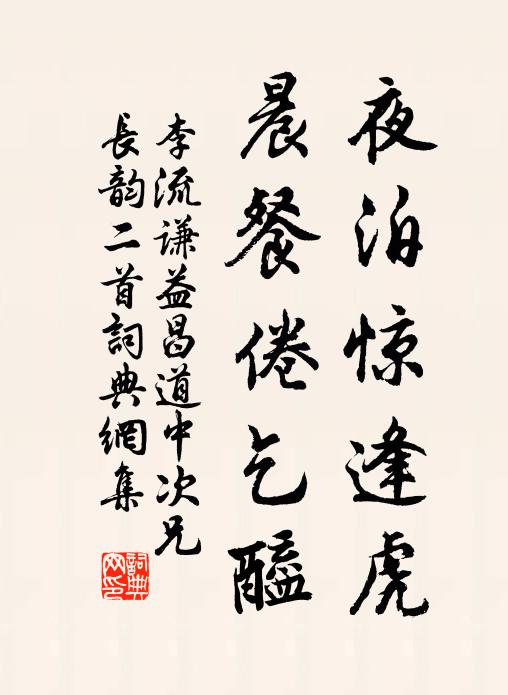 夜泊惊逢虎
晨餐倦乞醯
李流谦益昌道中次兄
長韵二首詞典網集
詞典网印